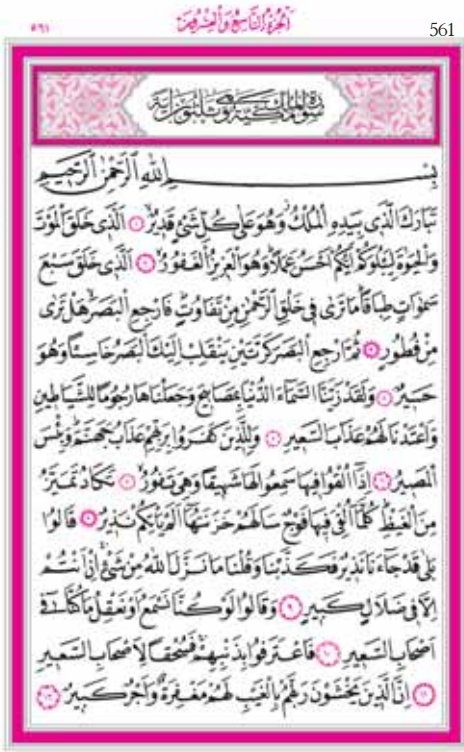 ٥٦١ الجزء التاسع والعشرون 561
سورة الملك مكية وهي ثلثون آية
بِسْمِ اللهِ الرَّحْمٰنِ الرَّحِيمِ
تَبَارَكَ الَّذِي بِيَدِهِ الْمُلْكُ وَهُوَ عَلٰى كُلِّ شَيْءٍ قَدِيرٌ ﴿١﴾ اَلَّذِي خَلَقَ الْمَوْتَ
وَالْحَيٰوةَ لِيَبْلُوَكُمْ اَيُّكُمْ اَحْسَنُ عَمَلًا وَهُوَ الْعَزِيزُ الْغَفُورُ ﴿٢﴾ اَلَّذِي خَلَقَ سَبْعَ
سَمٰوَاتٍ طِبَاقًا مَا تَرٰى فِي خَلْقِ الرَّحْمٰنِ مِنْ تَفَاوُتٍ فَارْجِعِ الْبَصَرَ هَلْ تَرٰى
مِنْ فُطُورٍ ﴿٣﴾ ثُمَّ ارْجِعِ الْبَصَرَ كَرَّتَيْنِ يَنْقَلِبْ اِلَيْكَ الْبَصَرُ خَاسِئًا وَهُوَ
حَسِيرٌ ﴿٤﴾ وَلَقَدْ زَيَّنَّا السَّمَاءَ الدُّنْيَا بِمَصَابِيحَ وَجَعَلْنَاهَا رُجُومًا لِلشَّيَاطِينِ
وَاَعْتَدْنَا لَهُمْ عَذَابَ السَّعِيرِ ﴿٥﴾ وَلِلَّذِينَ كَفَرُوا بِرَبِّهِمْ عَذَابُ جَهَنَّمَ وَبِئْسَ
الْمَصِيرُ ﴿٦﴾ اِذَا اُلْقُوا فِيهَا سَمِعُوا لَهَا شَهِيقًا وَهِيَ تَفُورُ ﴿٧﴾ تَكَادُ تَمَيَّزُ
مِنَ الْغَيْظِ كُلَّمَا اُلْقِيَ فِيهَا فَوْجٌ سَاَلَهُمْ خَزَنَتُهَا اَلَمْ يَاْتِكُمْ نَذِيرٌ ﴿٨﴾ قَالُوا
بَلٰى قَدْ جَاءَنَا نَذِيرٌ فَكَذَّبْنَا وَقُلْنَا مَا نَزَّلَ اللهُ مِنْ شَيْءٍ اِنْ اَنْتُمْ
اِلَّا فِي ضَلَالٍ كَبِيرٍ ﴿٩﴾ وَقَالُوا لَوْ كُنَّا نَسْمَعُ اَوْ نَعْقِلُ مَا كُنَّا فِي
اَصْحَابِ السَّعِيرِ ﴿١٠﴾ فَاعْتَرَفُوا بِذَنْبِهِمْ فَسُحْقًا لِاَصْحَابِ السَّعِيرِ
﴿١١﴾ اِنَّ الَّذِينَ يَخْشَوْنَ رَبَّهُمْ بِالْغَيْبِ لَهُمْ مَغْفِرَةٌ وَاَجْرٌ كَبِيرٌ ﴿١٢﴾